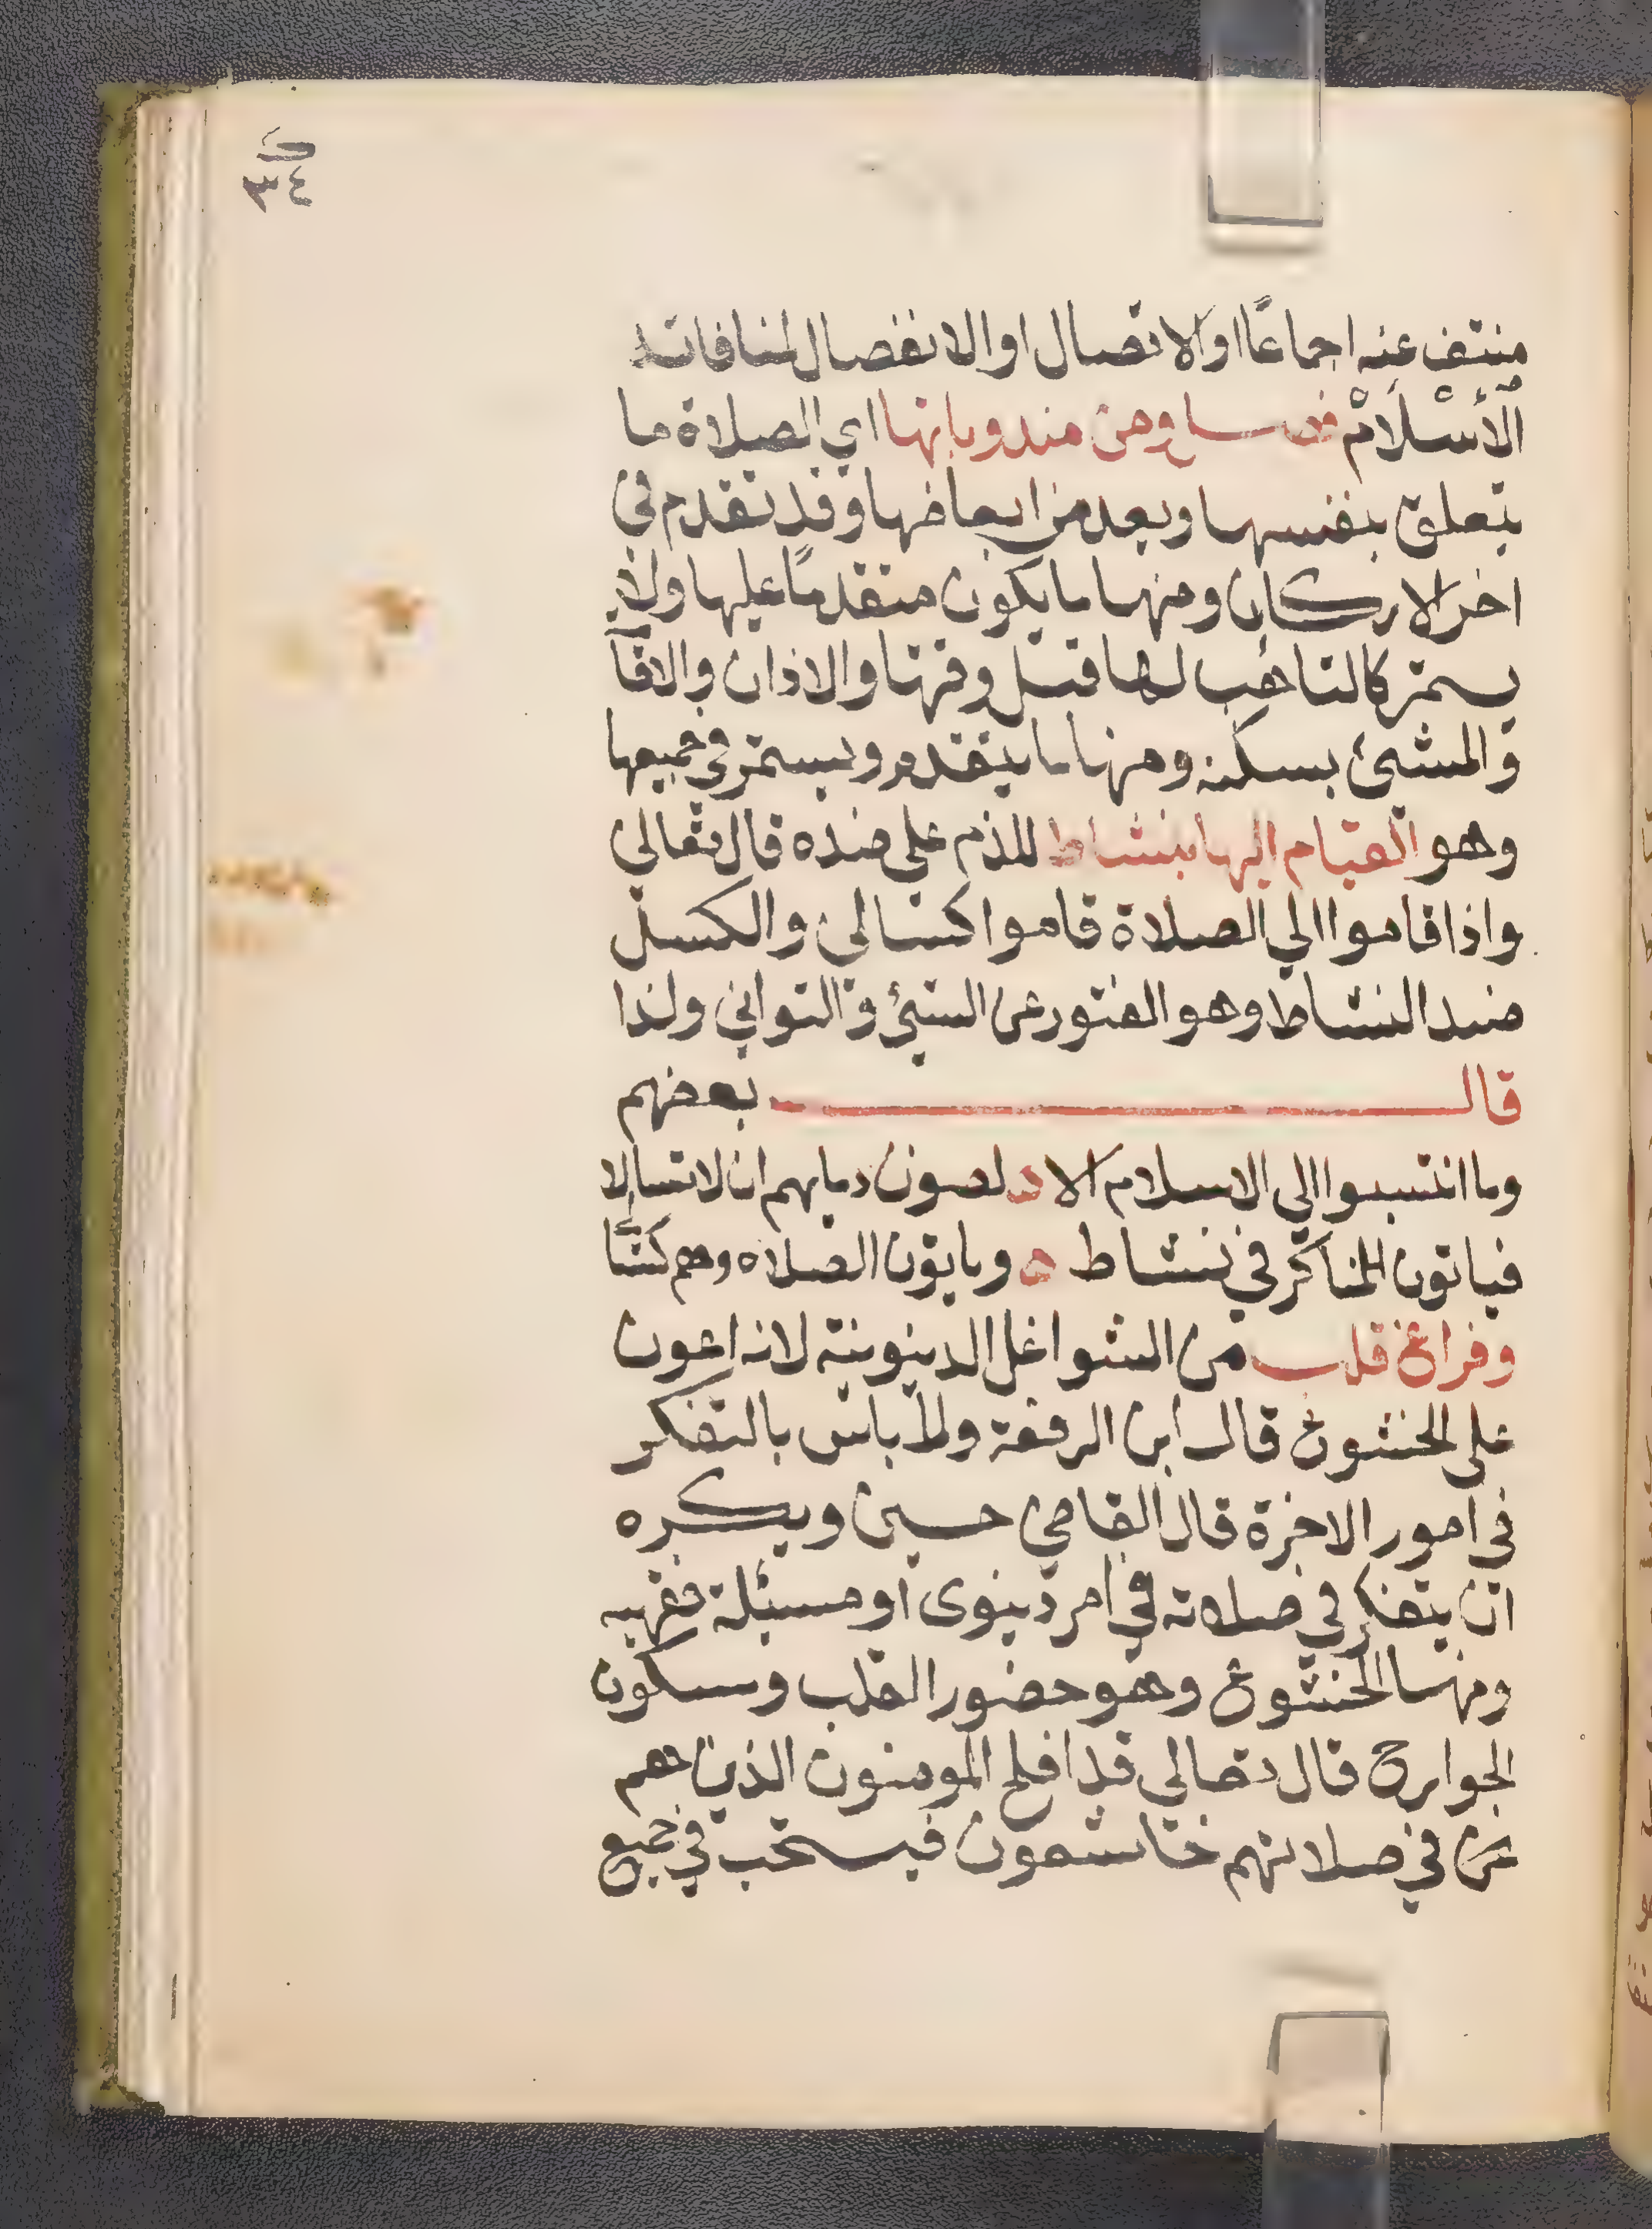 ك
٣٤
منتف عنه اجماعًا او الاتصال او الانفصال لمنافاته
الأسْلَامْ فصل ومن مندوباتها اي الصلاة ما
يتعلق بنفسها ويعد من ابعاضها وقد تقدم في
اخر الاركان ومنها ما يكون متقدمًا عليها ولا
يستمر كالتاهب لها قبل وقتها والاذان والاقآ
والمشئ بسكنه ومنها ما يتقدم ويستمر في جميعها
وهو القيام اليها بنشاط للذم على ضده قال تعالي
واذا قاموا الي الصلاة قاموا كسالى والكسل
ضد النشاط وهو الفتور عن الشئ والتواني ولذا
قال بعضهم
وما انتسبوا الي الاسلام الا لصون دمايهم ان لا تسالا
فياتون المناكر في نشاط ه وياتون الصلاه وهم كسا
وفراغ قلب من الشواغل الدينوية لانه اعون
على الخشوع قال ابن الرفعة ولا باس بالتفكر
في امور الاخرة قال القاضي حسين ويكره
ان يتفكر في صلاته في امر دينوى او مسئلة فقهيه
ومنها الخشوع وهو حضور القلب وسكون
الجوارح قال تعالي قد افلح المومنون الذين هم
عن في صلاتهم خاشعون فيستحب في جميع